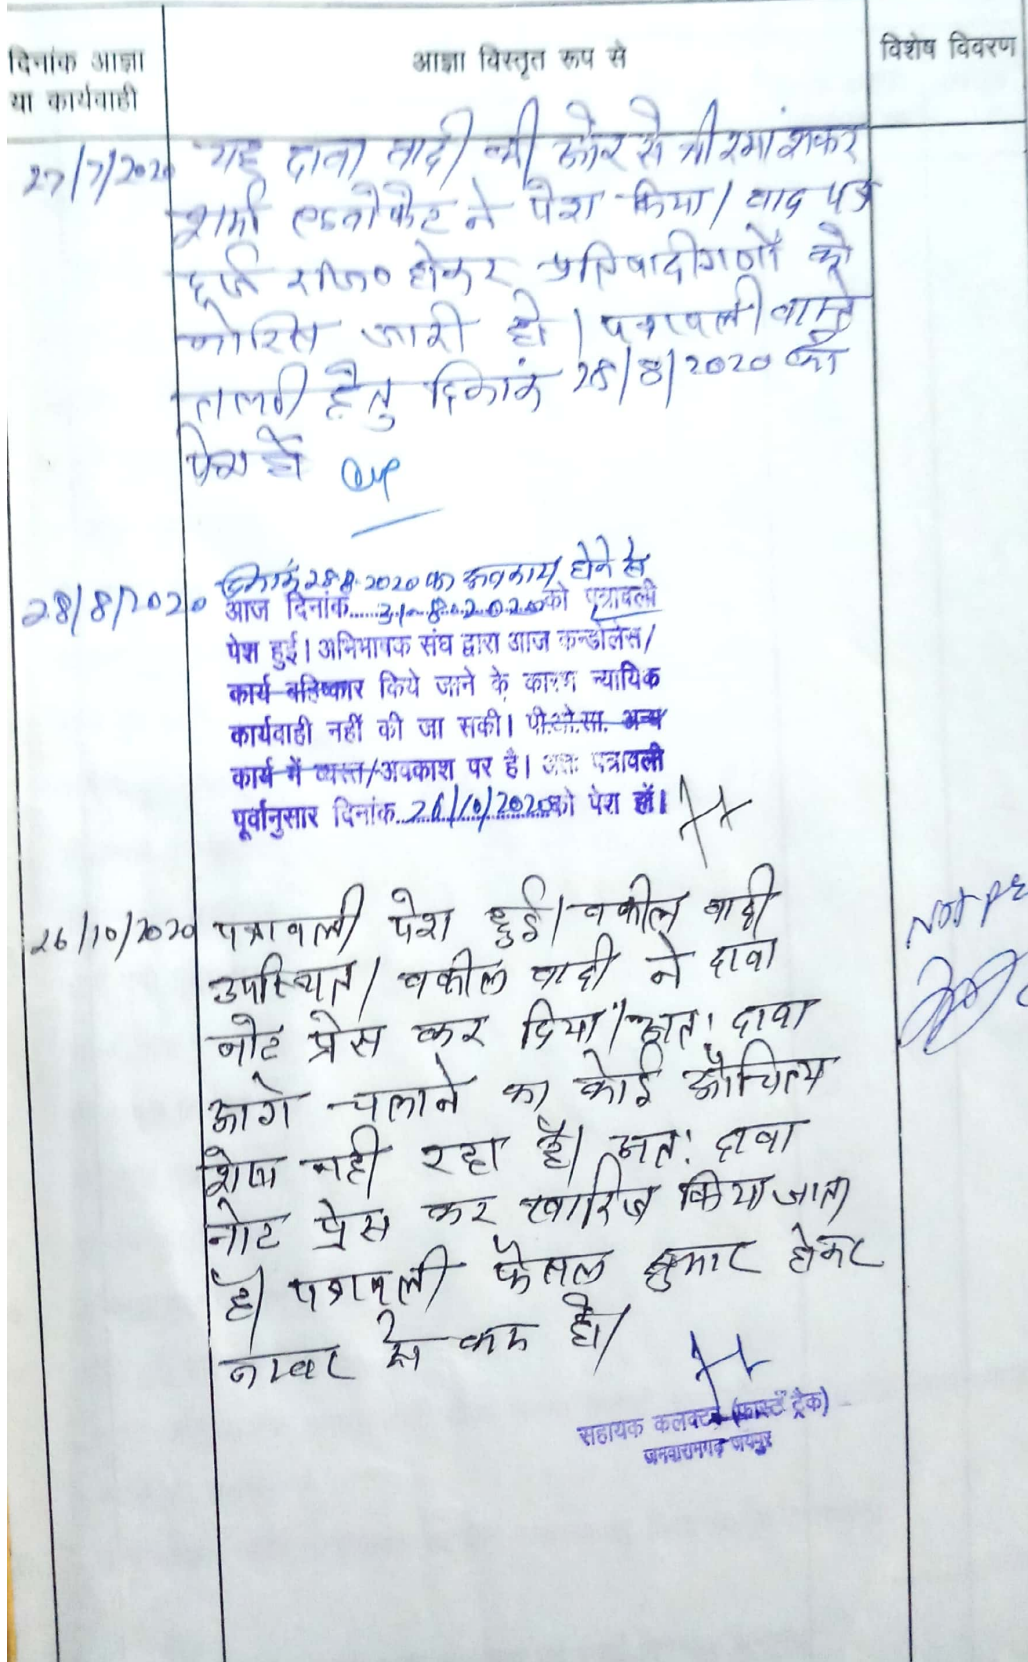 दिनांक आज्ञा
या कार्यवाही
आज्ञा विस्तृत रूप से
विशेष विवरण
27/7/2020
यह दावा वादी की ओर से श्री रमाशंकर
शर्मा एडवोकेट ने पेश किया। वाद पत्र
दर्ज रजि० होकर प्रतिवादीगणों को
नोटिस जारी हो। पत्रावली वास्ते
तलबी हेतु दिनांक 28/8/2020 को
पेश हो
28/8/2020
दिनांक 28.8.2020 का अवकाश होने से
आज दिनांक....31-8-2020को पत्रावली
पेश हुई। अभिभावक संघ द्वारा आज कन्डोलेंस/
कार्य बहिष्कार किये जाने के कारण न्यायिक
कार्यवाही नहीं की जा सकी। पी.ओ.सा. अन्य
कार्य में व्यस्त/अवकाश पर है। अतः पत्रावली
पूर्वानुसार दिनांक..26/10/2020को पेश हों।
26/10/2020
पत्रावली पेश हुई। वकील वादी
उपस्थित। वकील वादी ने दावा
नोट प्रेस कर दिया। अत: दावा
आगे चलाने का कोई औचित्य
शेष नही रहा है। अत: दावा
नोट प्रेस कर खारिज किया जाता
है। पत्रावली फैसल शुमार होकर
नम्बर से कम हो।
Not
सहायक कलक्टर (फास्ट ट्रैक)
जमवारामगढ़ जयपुर